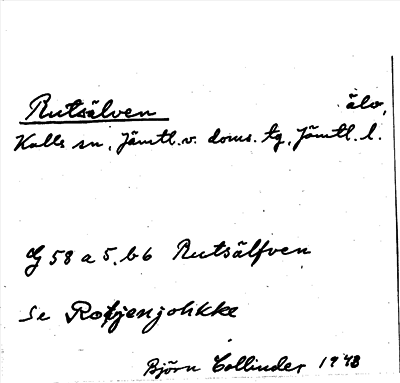 Rutsälven älv,
Kalls sn, Jämtl. v. doms. tg, Jämtl. l.
G 58 a 5, b 6 Rutsälfven
Se Rotjenjohkke
Björn Collinder 1948